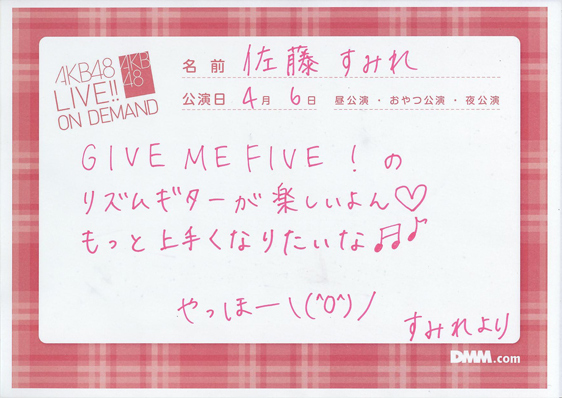 AKB48
LIVE!!
ON DEMAND
AKB
48
名前 佐藤 すみれ
公演日 4月 6日 昼公演・おやつ公演・夜公演
GIVE ME FIVE！の
リズムギターが楽しいよん♡
もっと上手くなりたいな♫♪
やっほー\(^o^)/
すみれより
DMM.com